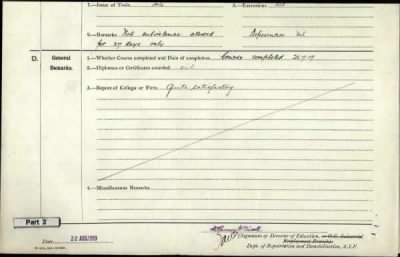 1.—Issue of Tools. nil 8.—Extensions. nil
9.—Remarks. Not subsistence allowed
for 27 days only. Allowances nil
D. General Remarks. 1.—Whether Course completed and Date of completion. Course completed 26-7-19
2.—Diplomas or Certificates awarded. nil
3.—Report of College or Firm. Quite satisfactory
4.—Miscellaneous Remarks.
Part 2
Date 22 AUG 1919
(Signature of Director of Education, or O.C. Industrial
Employment Branch)
Dept. of Repatriation and Demobilisation, A.I.F.